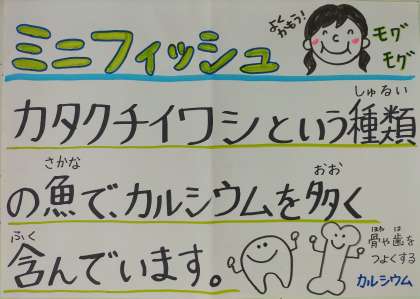 ミニフィッシュ
よく
かもう!
モグ
モグ
しゅるい
カタクチイワシという種類
さかな
おお
の魚で、カルシウムを多く
ふく
含んでいます。
ほね は
骨や歯を
つよくする
カルシウム